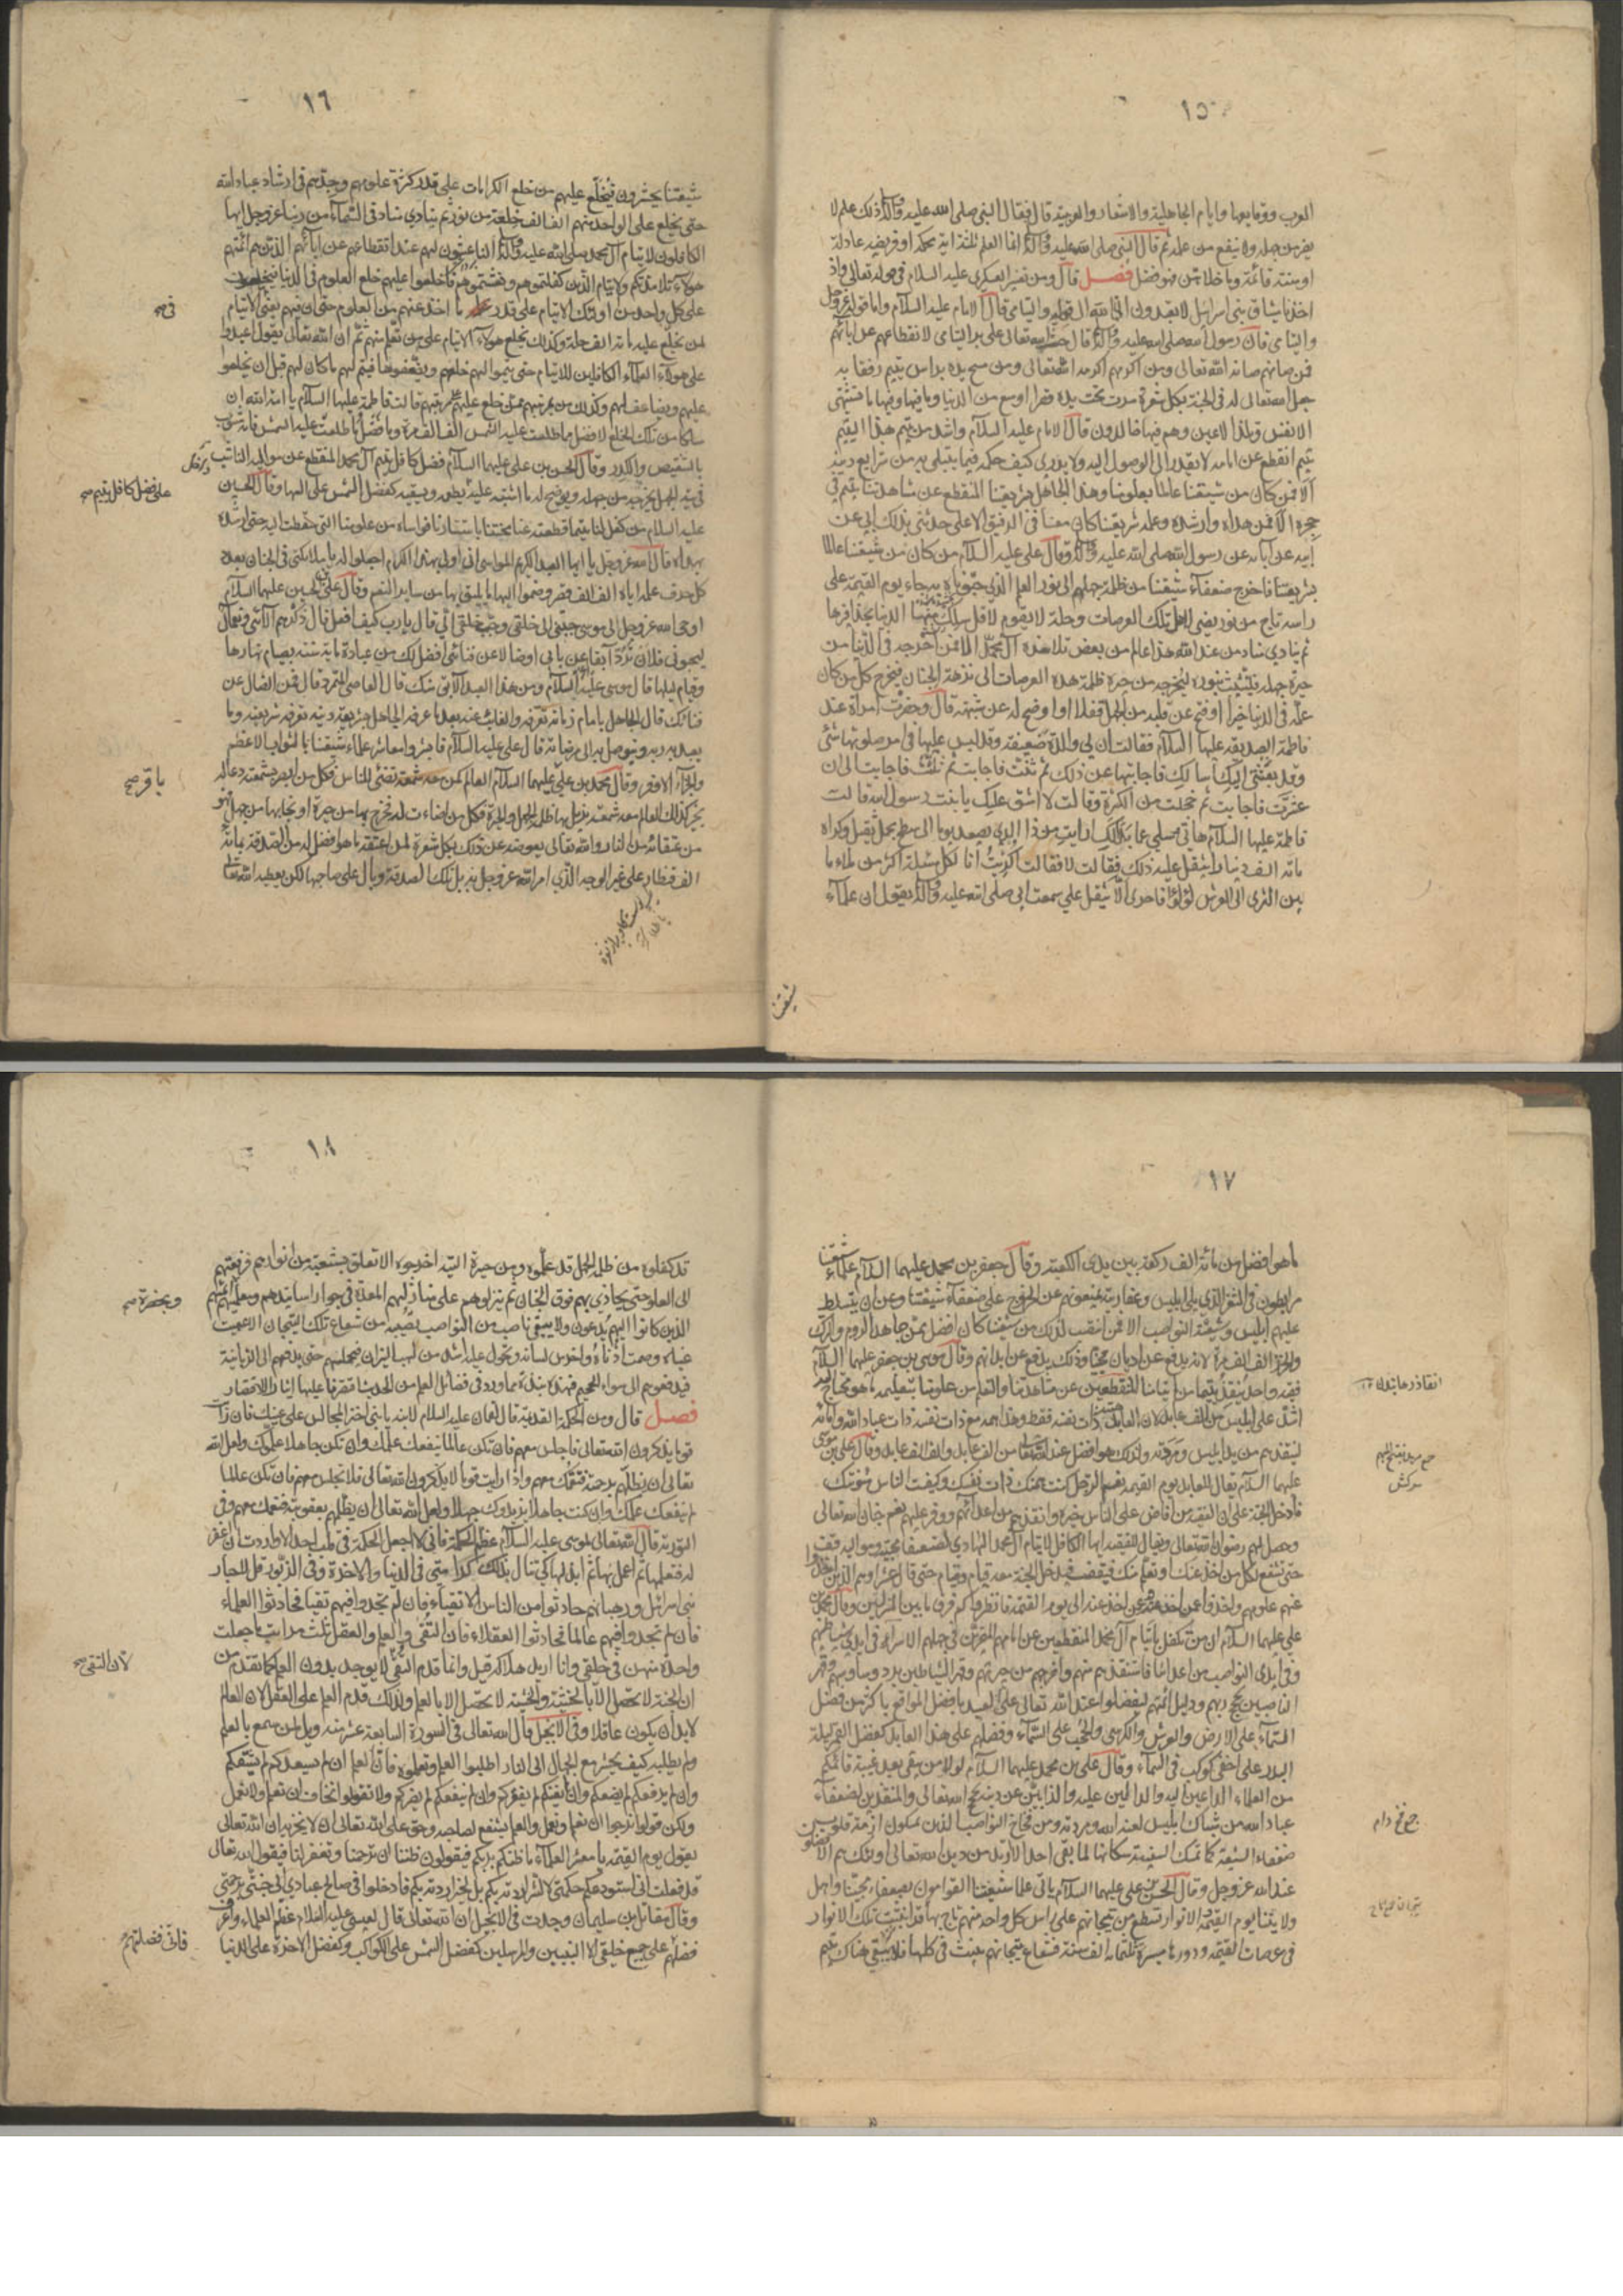 ١٥
العرب ووقايعها وايام الجاهلية والاشعار والعربية قال فقال النبي صلى الله عليه وآله ذلك علم لا
يضر من جهله ولا ينفع من علمه ثم قال النبي صلى الله عليه وآله انما العلم ثلثة اية محكمة او فريضة عادلة
او سنة قائمة وما خلاهن فهو فضل فصل قال ومن تفسير العسكري عليه السلام في قوله تعالى واذ
اخذنا ميثاق بني اسرائيل لا تعبدون الا الله الى قوله واليتامى قال الامام عليه السلام واما قوله عز وجل
واليتامى فان رسول الله صلى الله عليه وآله قال حث الله تعالى على بر اليتامى لانقطاعهم عن ابائهم
فمن صانهم صانه الله تعالى ومن اكرمهم اكرمه الله تعالى ومن مسح يده براس يتيم رفقا به
جعل الله تعالى له في الجنة بكل شعرة مرت تحت يده قصرا اوسع من الدنيا وما فيها وفيها ما تشتهي
الانفس وتلذ الاعين وهم فيها خالدون قال الامام عليه السلام واشد من يتم هذا اليتيم
يتيم انقطع عن امامه لا يقدر الى الوصول اليه ولا يدري كيف حكمه فيما يبتلى به من شرايع دينه
الا فمن كان من شيعتنا عالما بعلومنا وهذا الجاهل بشريعتنا المنقطع عن مشاهدتنا يتيم في
حجره الا فمن هداه وارشده وعلمه شريعتنا كان معنا في الرفيق الاعلى حدثني بذلك ابي عن
ابيه عن آبائه عن رسول الله صلى الله عليه وآله وقال علي عليه السلام من كان من شيعتنا عالما
بشريعتنا فاخرج ضعفاء شيعتنا من ظلمة جهلهم الى نور العلم الذي حبوناه به جاء يوم القيمة على
راسه تاج من نور يضئ لاهل تلك العرصات وحلة لا يقوم لاقل سلك منها الدنيا بحذافيرها
ثم ينادي مناد من عند الله هذا عالم من بعض تلامذة آل محمد الا فمن اخرجه في الدنيا من
حيرة جهله فليتشبث بنوره ليخرجه من حيرة ظلمة هذه العرصات الى نزهة الجنان فيخرج كل من كان
علمه في الدنيا خيرا او فتح عن قلبه من الجهل قفلا او اوضح له عن شبهة قال وحضرت امرأة عند
فاطمة الصديقة عليها السلام فقالت ان لي والدة ضعيفة وقد لبس عليها في امر صلوتها شئ
وقد بعثتني اليك اسالك فاجابتها عن ذلك ثم ثنت فاجابت ثم ثلثت فاجابت الى ان
عشرت فاجابت ثم خجلت من الكثرة وقالت لا اشق عليك يا بنت رسول الله قالت
فاطمة عليها السلام هاتي وسلي عما بدا لك ارايت من ذا الذي يصعد يوما الى سطح بحمل ثقيل وكراه
مائة الف دينار ايثقل عليه ذلك فقالت لا فقالت اكريت انا لكل مسئلة اكثر من ملء ما
بين الثرى الى العرش لؤلؤا فاحرى الا يثقل علي سمعت ابي صلى الله عليه وآله يقول ان علماء
شيعتنا
١٦
شيعتنا يحشرون فيخلع عليهم من خلع الكرامات على قدر كثرة علومهم وجدهم في ارشاد عباد الله
حتى يخلع على الواحد منهم الف الف خلعة من نور ثم ينادي مناد في السماء من ربنا عز وجل ايها
الكافلون لايتام آل محمد صلى الله عليه وآله الناعشون لهم عند انقطاعهم عن ابائهم الذين هم ائمتهم
هؤلاء تلامذتكم والايتام الذين كفلتموهم ونعشتموهم فاخلعوا عليهم خلع العلوم في الدنيا فيخلعون
على كل واحد من اولئك الايتام على قدر ما اخذ عنهم من العلوم حتى ان فيهم يعني الايتام
لمن يخلع عليه مائة الف حلة وكذلك يخلع هؤلاء الايتام على من تعلم منهم ثم ان الله تعالى يقول اعيدوا
على هؤلاء العلماء الكافلين للايتام حتى يتموا لهم خلعهم ويضعفوها فيتم لهم ما كان لهم قبل ان يخلعوا
عليهم ويضاعف لهم وكذلك من بمرتبتهم ممن خلع عليهم على مرتبتهم قالت فاطمة عليها السلام يا امة الله ان
سلكا من تلك الخلع لافضل مما طلعت عليه الشمس الف الف مرة وما فضل ما طلعت عليه الشمس فانه مشوب
بالتنقيص والكدر وقال الحسن بن علي عليهما السلام فضل كافل يتيم آل محمد المنقطع عن مواليه الناشب
في تيه الجهل يخرجه من جهله ويوضح له ما اشتبه عليه يطعمه ويسقيه كفضل الشمس على السها وقال الحسين
عليه السلام من كفل لنا يتيما قطعته عنا محبتنا باستتارنا فواساه من علومنا التي سقطت اليه حتى ارشده
بهداه قال الله عز وجل يا ايها العبد الكريم المواسي اني اولى بهذا الكرم اجعلوا له يا ملائكتي في الجنان بعدد
كل حرف علمه اياه الف الف قصر وضموا اليها ما يليق بها من ساير النعم وقال علي بن الحسين عليهما السلام
اوحى الله عز وجل الى موسى حببني الى خلقي وحبب خلقي الي قال يا رب كيف افعل قال ذكرهم آلائي ونعمائي
ليحبوني فلان ترد آبقا عن بابي او ضالا عن فنائي افضل لك من عبادة مائة سنة بصيام نهارها
وقيام ليلها قال موسى عليه السلام ومن هذا العبد الآبق منك قال العاصي المتمرد قال فمن الضال عن
فنائك قال الجاهل بامام زمانه تعرفه والغائب عنه بعد ما عرفه الجاهل بشريعة دينه تعرفه شريعته وما
يعبد به ربه ويتوصل به الى مرضاته قال علي عليه السلام فابشروا معاشر علماء شيعتنا بالثواب الاعظم
والجزاء الاوفر وقال محمد بن علي عليهما السلام العالم كمن معه شمعة تضئ للناس فكل من ابصر بشمعته دعا له
بخير كذلك العالم معه شمعة يزيل بها ظلمة الجهل والحيرة فكل من اضاءت له فخرج بها من حيرة او نجا بها من جهل فهو
من عتقائه من النار والله تعالى يعوضه عن ذلك بكل شعرة لمن اعتقه ما هو افضل له من الصدقة بمائة
الف قنطار على غير الوجه الذي امر الله عز وجل به بل تلك الصدقة وبال على صاحبها لكن يعطيه الله تعالى
في صح
على فضل كافل يتيم صح
باقر صح
١٧
ما هو افضل من مائة الف ركعة بين يدي الكعبة وقال جعفر بن محمد عليهما السلام علماء شيعتنا
مرابطون في الثغر الذي يلي ابليس وعفاريته يمنعونهم عن الخروج على ضعفاء شيعتنا وعن ان يتسلط
عليهم ابليس وشيعته النواصب الا فمن انتصب لذلك من شيعتنا كان افضل ممن جاهد الروم والترك
والخزر الف الف مرة لانه يدفع عن اديان محبينا وذلك يدفع عن ابدانهم وقال موسى بن جعفر عليهما السلام
فقيه واحد ينقذ يتيما من ايتامنا المنقطعين عن مشاهدتنا والتعلم من علومنا بتعليمه ما هو محتاج اليه
اشد على ابليس من الف عابد لان العابد همته ذات نفسه فقط وهذا همه مع ذات نفسه ذات عباد الله وامائه
لينقذهم من يد ابليس ومردته ولذلك هو افضل عند الله تعالى من الف عابد والف الف عابد وقال علي بن موسى
عليهما السلام يقال للعابد يوم القيمة نعم الرجل كنت همتك ذات نفسك وكفيت الناس مؤنتك
فادخل الجنة الا ان الفقيه من افاض على الناس خيره وانقذهم من اعدائهم ووفر عليهم نعم جنان الله تعالى
وحصل لهم رضوان الله تعالى ويقال للفقيه ايها الكافل لايتام آل محمد الهادي لضعفاء محبيه ومواليه قف
حتى تشفع لكل من اخذ عنك او تعلم منك فيقف فيدخل الجنة معه فئام وفئام حتى قال عشرا وهم الذين اخذوا
عنهم علومهم واخذوا عمن اخذ عنهم عن اخذ عنه الى يوم القيمة فانظروا كم فرق ما بين المنزلتين وقال محمد بن
علي عليهما السلام ان من تكفل بايتام آل محمد المنقطعين عن امامهم المتحيرين في جهلهم الاسراء في ايدي شياطينهم
وفي ايدي النواصب من اعدائنا فاستنقذهم منهم واخرجهم من حيرتهم وقهر الشياطين برد وساوسهم وقهر
الناصبين بحجج ربهم ودليل ائمتهم ليفضلوا عند الله تعالى على العبد بافضل المواقع باكثر من فضل
السماء على الارض والعرش والكرسي والحجب على السماء وفضلهم على هذا العابد كفضل القمر ليلة
البدر على اخفى كوكب في السماء وقال علي بن محمد عليهما السلام لولا من يبقى بعد غيبة قائمكم
من العلماء الداعين اليه والدالين عليه والذابين عن دينه بحجج الله تعالى والمنقذين لضعفاء
عباد الله من شباك ابليس لعنه الله ومردته ومن فخاخ النواصب الذين يمسكون ازمة قلوب
ضعفاء الشيعة كما تمسك السفينة سكانها لما بقي احد الا ارتد من دين الله تعالى اولئك هم الافضلون
عند الله عز وجل وقال الحسن بن علي عليهما السلام ياتي علماء شيعتنا القوامون بضعفاء محبينا واهل
ولايتنا يوم القيمة الانوار تسطع من تيجانهم على راس كل واحد منهم تاج بهاء قد انبثت تلك الانوار
في عرصات القيمة ودورها مسيرة ثلثمائة الف سنة فشعاع تيجانهم ينبث في كلها فلا يبقى هناك يتيم
١٨
قد كفلوه من ظلمة الجهل قد علموه ومن حيرة التيه اخرجوه الا تعلق بشعبة من انوارهم فرفعتهم
الى العلو حتى يحاذي بهم فوق الجنان ثم ينزلوهم على منازلهم المعدة في جوار اساتيدهم ومعلميهم ائمتهم
الذين كانوا اليهم يدعون ولا يبقى ناصب من النواصب يصيبه من شعاع تلك التيجان الا عميت
عيناه وصمت اذناه واخرس لسانه وتحول عليه اشد من لهب النيران فيحملهم حتى يدفعهم الى الزبانية
فيدعوهم الى سواء الجحيم فهذه نبذة مما ورد في فضائل العلم من الحديث اقتصرنا عليها ايثارا للاختصار
فصل قال ومن الحكمة القديمة قال لقمان عليه السلام لابنه يا بني اختر المجالس على عينك فان رايت
قوما يذكرون الله تعالى فاجلس معهم فان تكن عالما ينفعك علمك وان تكن جاهلا علموك ولعل الله
تعالى ان يظلهم برحمة فتعمك معهم واذا رايت قوما لا يذكرون الله تعالى فلا تجلس معهم فان تكن عالما
لم ينفعك علمك وان كنت جاهلا يزيدوك جهلا ولعل الله تعالى ان يظلهم بعقوبة فتعمك معهم وفي
التورية قال الله تعالى لموسى عليه السلام عظم الحكمة فاني لا اجعل الحكمة في قلب احد الا واردت ان اغفر
له فتعلمها ثم اعمل بها ثم ابذلها كي تنال بذلك كرامتي في الدنيا والاخرة وفي الزبور قل لاحبار
بني اسرائيل ورهبانهم حادثوا من الناس الاتقياء فان لم تجدوا فيهم تقيا فحادثوا العلماء
فان لم تجدوا فيهم عالما فحادثوا العقلاء فان التقى والعلم والعقل ثلث مراتب ما جعلت
واحدة منهن في خلقي وانا اريد هلاكه قيل وانما قدم التقى لا يوجد بدون العلم كما تقدم من
ان الخشية لا تحصل الا بالعلم ولذلك قدم العلم على العقل لان العالم
لا بد ان يكون عاقلا وفي الانجيل قال الله تعالى في السورة السابعة عشر منه ويل لمن سمع بالعلم
ولم يطلبه كيف يحشر مع الجهال الى النار اطلبوا العلم وتعلموه فان العلم ان لم يسعدكم لم يشقكم
وان لم يرفعكم لم يضعكم وان لم يغنكم لم يفقركم وان لم ينفعكم لم يضركم ولا تقولوا نخاف ان نعلم ولا نعمل
ولكن قولوا نرجو ان نعلم ونعمل والعلم يشفع لصاحبه وحق على الله تعالى ان لا يخزيه ان الله تعالى
يقول يوم القيمة يا معشر العلماء ما ظنكم بربكم فيقولون ظننا ان ترحمنا وتغفر لنا فيقول الله تعالى
قد فعلت اني استودعتكم حكمتي لا لشر اردته بكم بل لخير اردته بكم فادخلوا في صالح عبادي الى جنتي برحمتي
وقال مقاتل بن سليمان وجدت في الانجيل ان الله تعالى قال لعيسى عليه السلام عظم العلماء واعرف
فضلهم على جميع خلقي الا النبيين والمرسلين كفضل الشمس على الكواكب وكفضل الاخرة على الدنيا
لان التقى صح
فاني فضلتهم